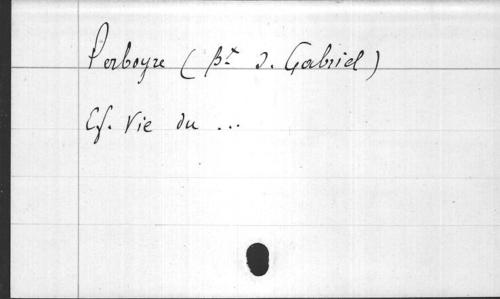 Perboyre (Bx J. Gabriel)
Cf. Vie du ...